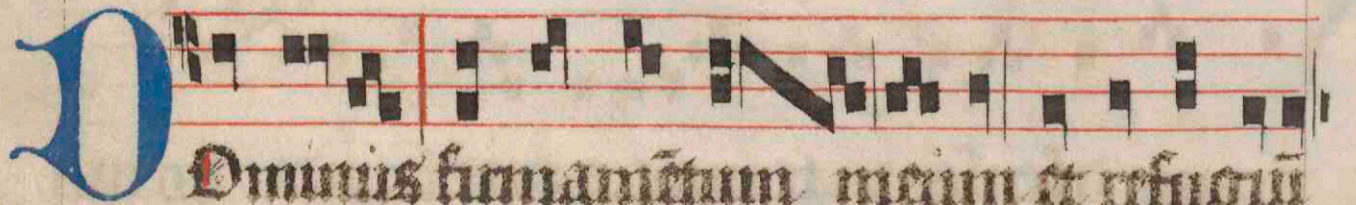 DOminus firmamētum meum et refugiū